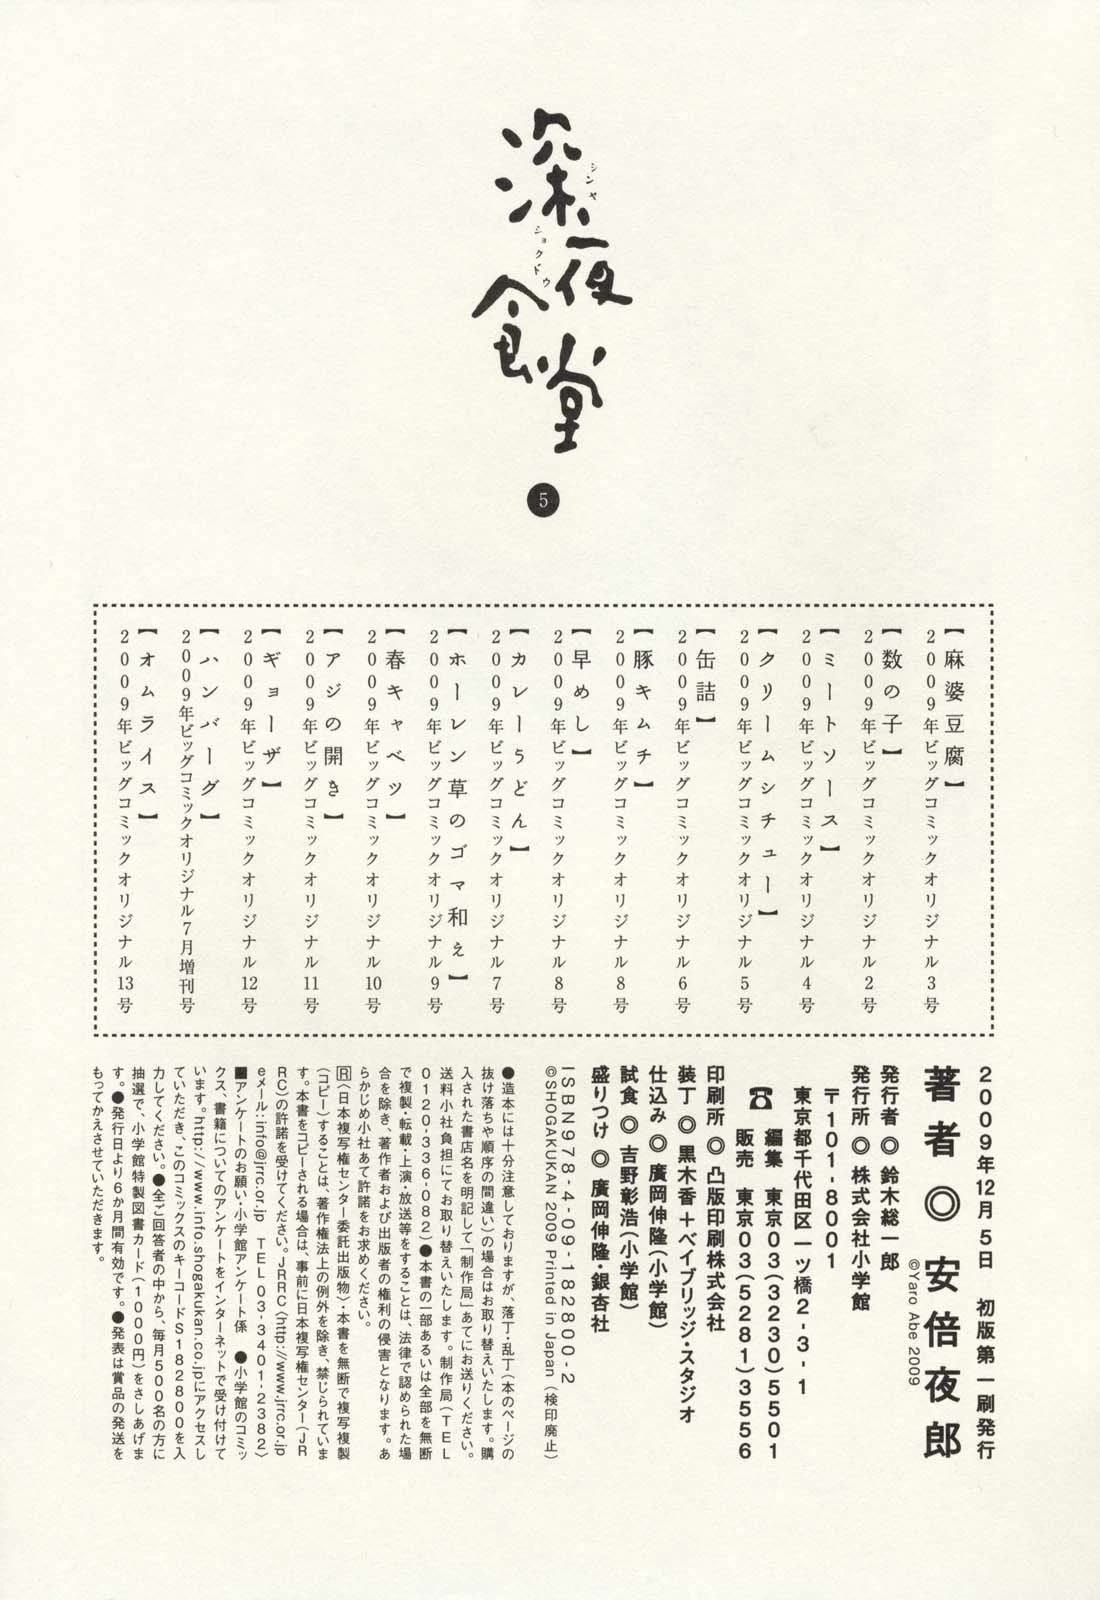 深夜食堂
シンヤ
ショクドウ
5
【麻婆豆腐】
2009年ビッグコミックオリジナル3号
【数の子】
2009年ビッグコミックオリジナル2号
【ミートソース】
2009年ビッグコミックオリジナル4号
【クリームシチュー】
2009年ビッグコミックオリジナル5号
【缶詰】
2009年ビッグコミックオリジナル6号
【豚キムチ】
2009年ビッグコミックオリジナル8号
【早めし】
2009年ビッグコミックオリジナル8号
【カレーうどん】
2009年ビッグコミックオリジナル7号
【ホーレン草のゴマ和え】
2009年ビッグコミックオリジナル9号
【春キャベツ】
2009年ビッグコミックオリジナル10号
【アジの開き】
2009年ビッグコミックオリジナル11号
【ギョーザ】
2009年ビッグコミックオリジナル12号
【ハンバーグ】
2009年ビッグコミックオリジナル7月増刊号
【オムライス】
2009年ビッグコミックオリジナル13号
2009年12月5日 初版第一刷発行
著者◎安倍夜郎
©Yaro Abe 2009
発行者◎鈴木総一郎
発行所◎株式会社小学館
〒101-8001
東京都千代田区一ツ橋2-3-1
☎ 編集 東京03(3230)5501
販売 東京03(5281)3556
印刷所◎凸版印刷株式会社
装丁◎黒木香+ベイブリッジ・スタジオ
仕込み◎廣岡伸隆(小学館)
試食◎吉野彰浩(小学館)
盛りつけ◎廣岡伸隆・銀杏社
ISBN978-4-09-182800-2
©SHOGAKUKAN 2009 Printed in Japan (検印廃止)
●造本には十分注意しておりますが、落丁・乱丁(本のページの
抜け落ちや順序の間違い)の場合はお取り替えいたします。購
入された書店名を明記して「制作局」あてにお送りください。
送料小社負担にてお取り替えいたします。制作局(TEL
0120-336-082)●本書の一部あるいは全部を無断
で複製・転載・上演・放送等をすることは、法律で認められた場
合を除き、著作者および出版者の権利の侵害となります。あ
らかじめ小社あて許諾をお求めください。
R〈日本複写権センター委託出版物〉・本書を無断で複写複製
(コピー)することは、著作権法上の例外を除き、禁じられていま
す。本書をコピーされる場合は、事前に日本複写権センター(JR
RC)の許諾を受けてください。JRRC〈http://www.jrrc.or.jp
eメール:info@jrrc.or.jp TEL03-3401-2382〉
■アンケートのお願い・小学館アンケート係 ●小学館のコミッ
クス、書籍についてのアンケートをインターネットで受け付けて
います。http://www.info.shogakukan.co.jpにアクセスし
ていただき、このコミックスのキーコードS182800を入
力してください。●全ご回答者の中から、毎月500名の方に
抽選で、小学館特製図書カード(1000円)をさしあげま
す。●発行日より6か月間有効です。●発表は賞品の発送を
もってかえさせていただきます。